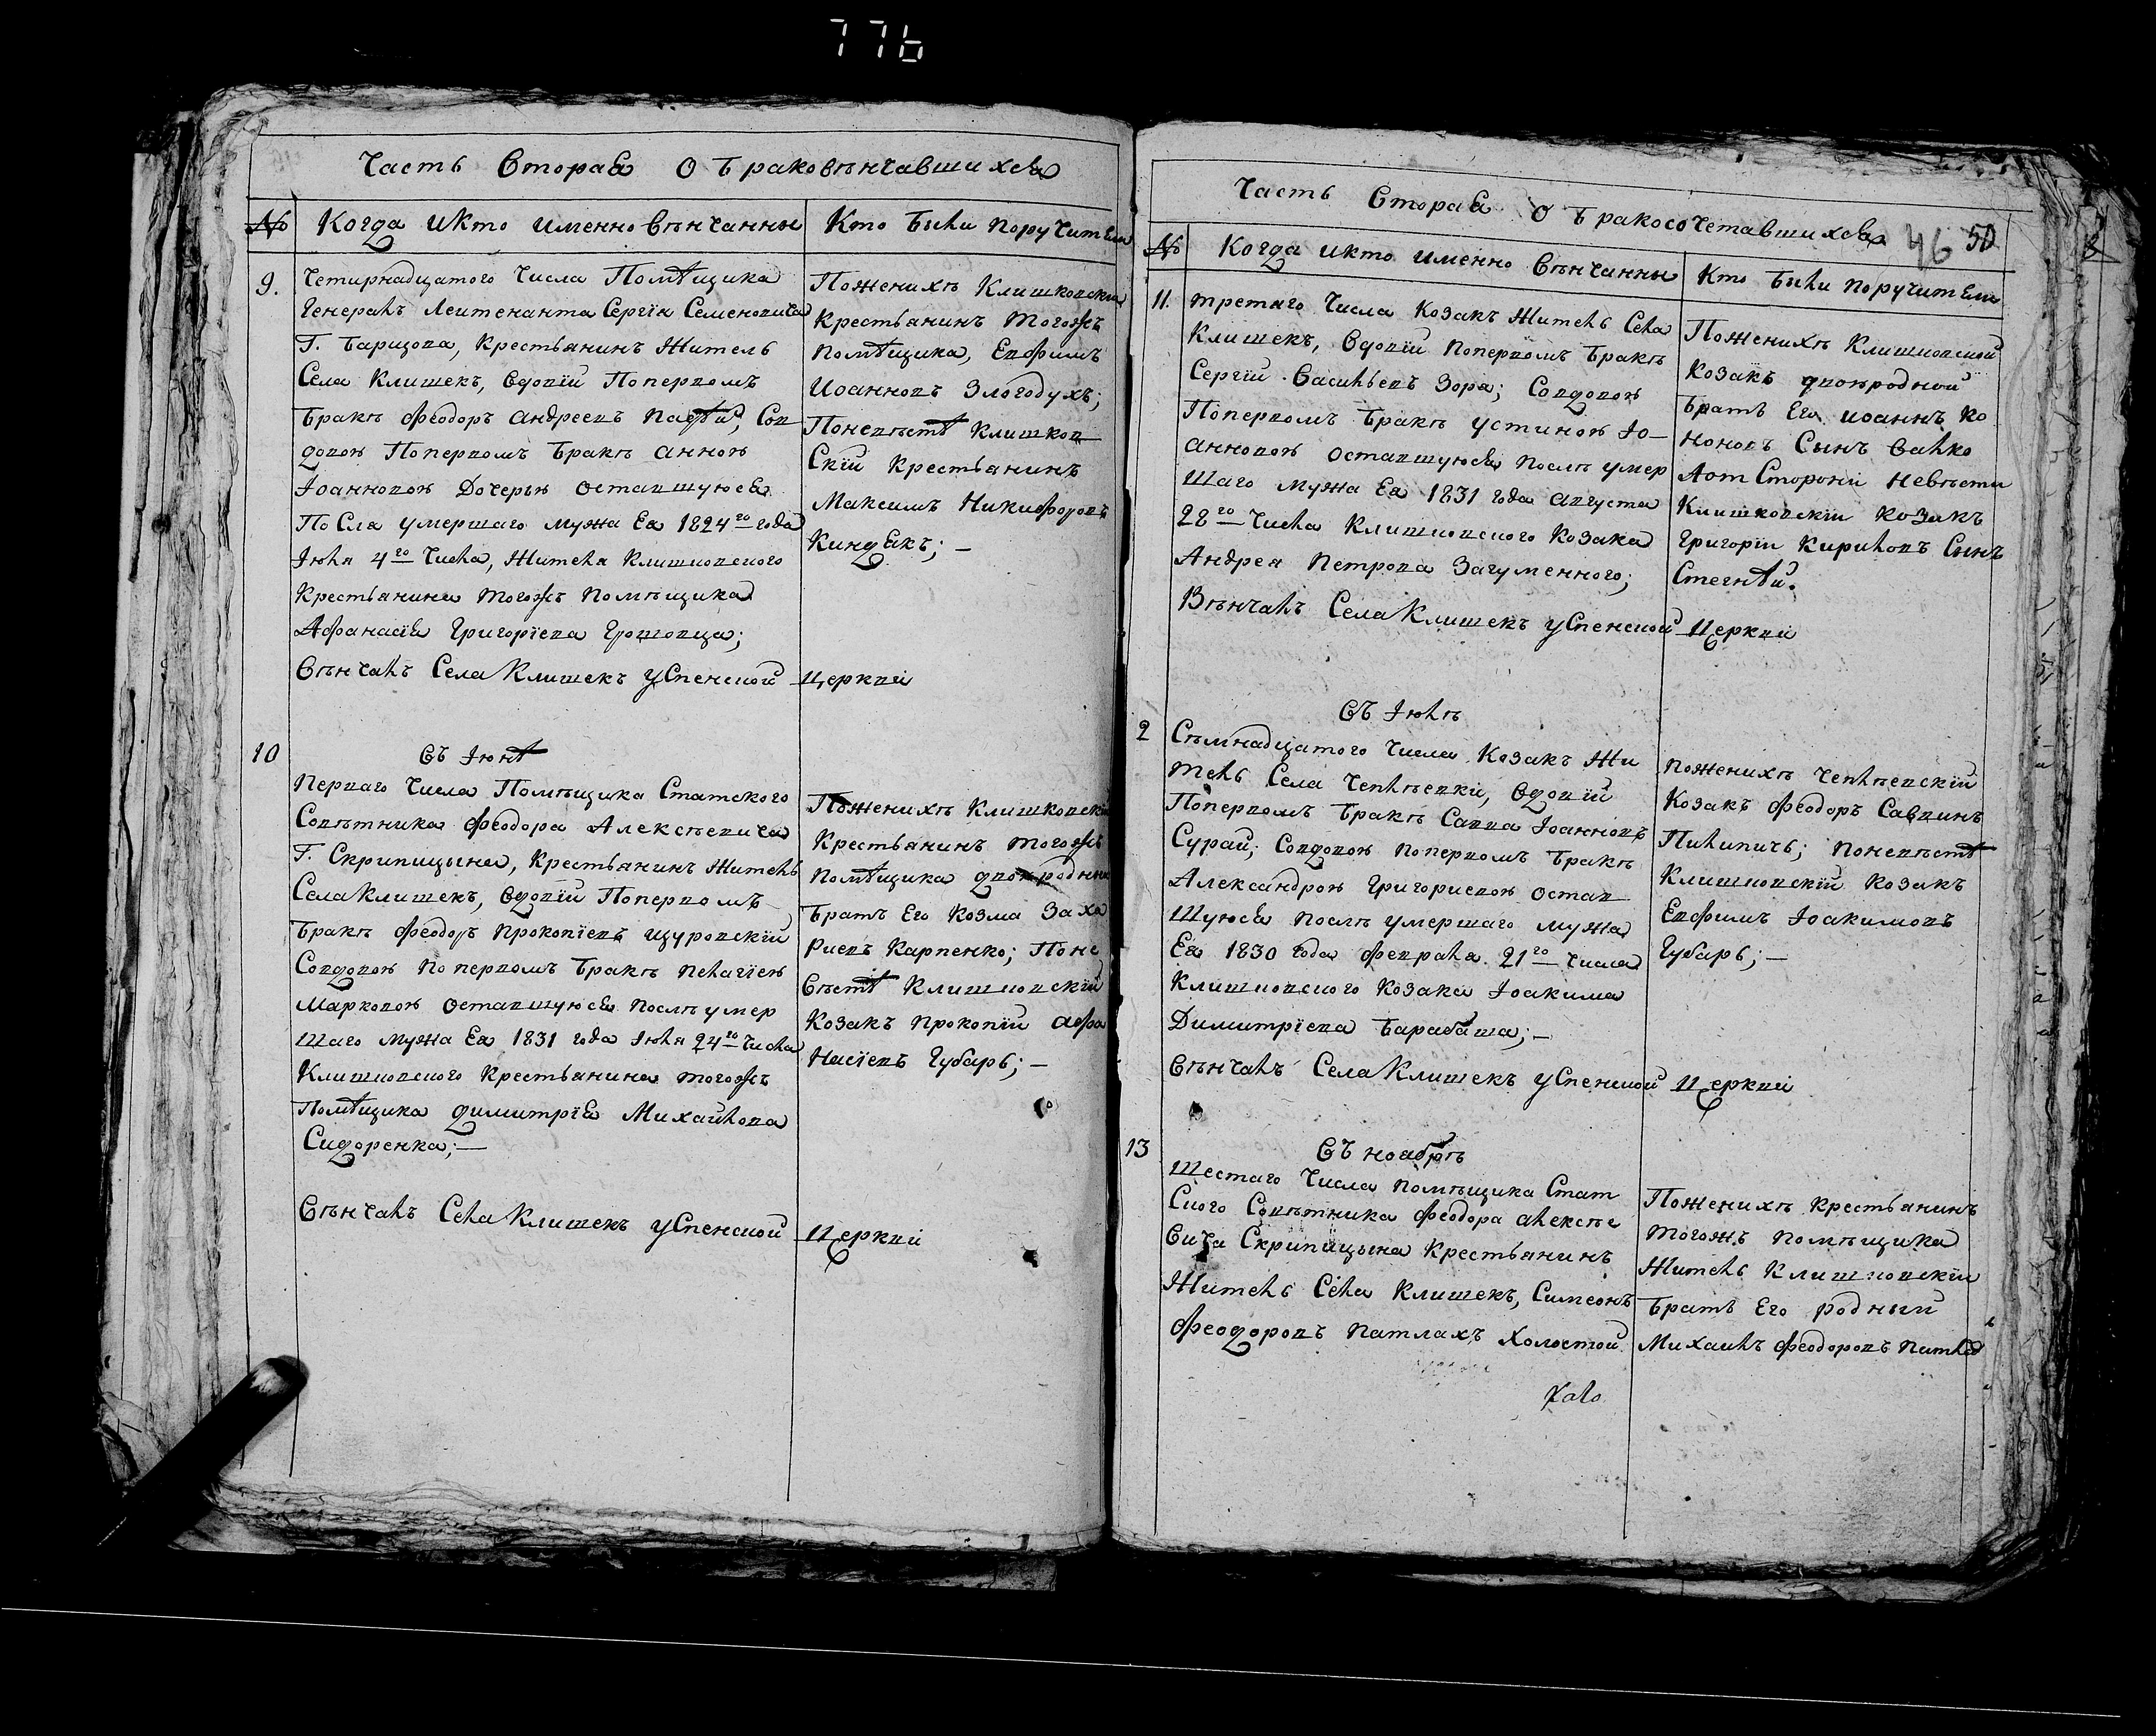 776
Часть Вторая О браковѣнчавшихся
№ Когда и кто именно вѣнчанны Кто были поручители
9. Четирнадцатого числа Помѣщика
Генералъ Леитенанта Сергія Семеновича
Г. Барщова, Крестьянинъ Житель
Села Клишекъ, вдовій По первомъ
бракѣ Феодоръ Андреевъ Сов
довою По первомъ бракѣ Анною
Іоанновою Дочерью оставшуюся
По Сля умершаго мужа Ея 1824го года
Іюля 4го числа, Жителя Клишковского
Крестьянина тогожъ помѣщика
Афанасія Григоріева Грошовца;
Вѣнчалъ Села Клишекъ успенской церкви
По женихѣ Клишковскій
Крестьянинъ тогожъ
помѣщика, Евфимъ
Иоанновъ Злогодухъ;
По невѣстѣ Клишков
Скій Крестьянинъ
Максимъ Никифоровъ
Киндякъ; —
10 Въ Іюнѣ
Перваго числа Помѣщика Статского
Совѣтника Феодора Алексѣевича
Г. Скрипицына, Крестьянинъ Житель
Села Клишекъ, вдовій По первомъ
бракѣ Феодоръ Прокопіевъ Щуровскій
Совдовою По первомъ бракѣ Пелагіею
Марковою оставшуюся послѣ умер
шаго мужа Ея 1831 года Іюля 24го числа
Клишковского Крестьянина тогожъ
Помѣщика Димитрія Михайлова
Сидоренка; —
Вѣнчалъ Села Клишекъ успенской церкви
По женихѣ Клишковскій
Крестьянинъ тогожъ
помѣщика двоюродный
братъ Его Козма Заха
риевъ Карпенко; По не
вѣстѣ Клишковскій
Козакъ Прокопій Афа
насіевъ Губарь; —
Часть Вторая О бракосочетавшихся 46 50
№ Когда и кто именно вѣнчанны Кто были поручители
11. третаго числа Козакъ Житель Села
Клишекъ, вдовій По первомъ бракѣ
Сергій Васильевъ Зора; Совдовою
По первомъ бракѣ Устиною Іо-
анновою оставшуюся послѣ умер
шаго мужа Ея 1831 года августа
28го числа Клишковского Козака
Андрея Петрова Загуменного;
Вѣнчалъ Села Клишекъ успенской церкви
По женихѣ Клишковской
Козакъ двоюродной
братъ Его Иоаннъ Ко
ноновъ Сынъ Валко
А от Стороны Невѣсти
Клишковскій козакъ
Григорій Кириловъ Сынъ
Стегнѣй.
2 Въ Іюлѣ
Сѣмнадцатого числа Козакъ Жи
тель Села Чеплѣевки, вдовій
По первомъ бракѣ Савва Іоанновъ
Сурай; Совдовою по первомъ бракѣ
Александрою Григориевою остав
шуюся послѣ умершаго мужа
Ея 1830 года февраля 21го числа
Клишковского Козака Іоакима
Димитріева Барабаша; —
Вѣнчалъ Села Клишекъ успенской церкви
По женихѣ Чеплѣевскій
Козакъ Феодоръ Саввинъ
Пилипичъ; По невѣстѣ
Клишковскій Козакъ
Евфимъ Іоакимовъ
Губарь; —
13 Въ ноябрѣ
Шестаго числа помѣщика Стат
Ского Совѣтника Феодора Алексѣе
вича Скрипицына Крестьянинъ
Житель Села Клишекъ, Симеонъ
Феодоровъ Патлахъ Холостой
По женихѣ Крестьянинъ
тогожъ помѣщика
Житель Клишковскій
братъ Его родный
Михаилъ Феодоровъ